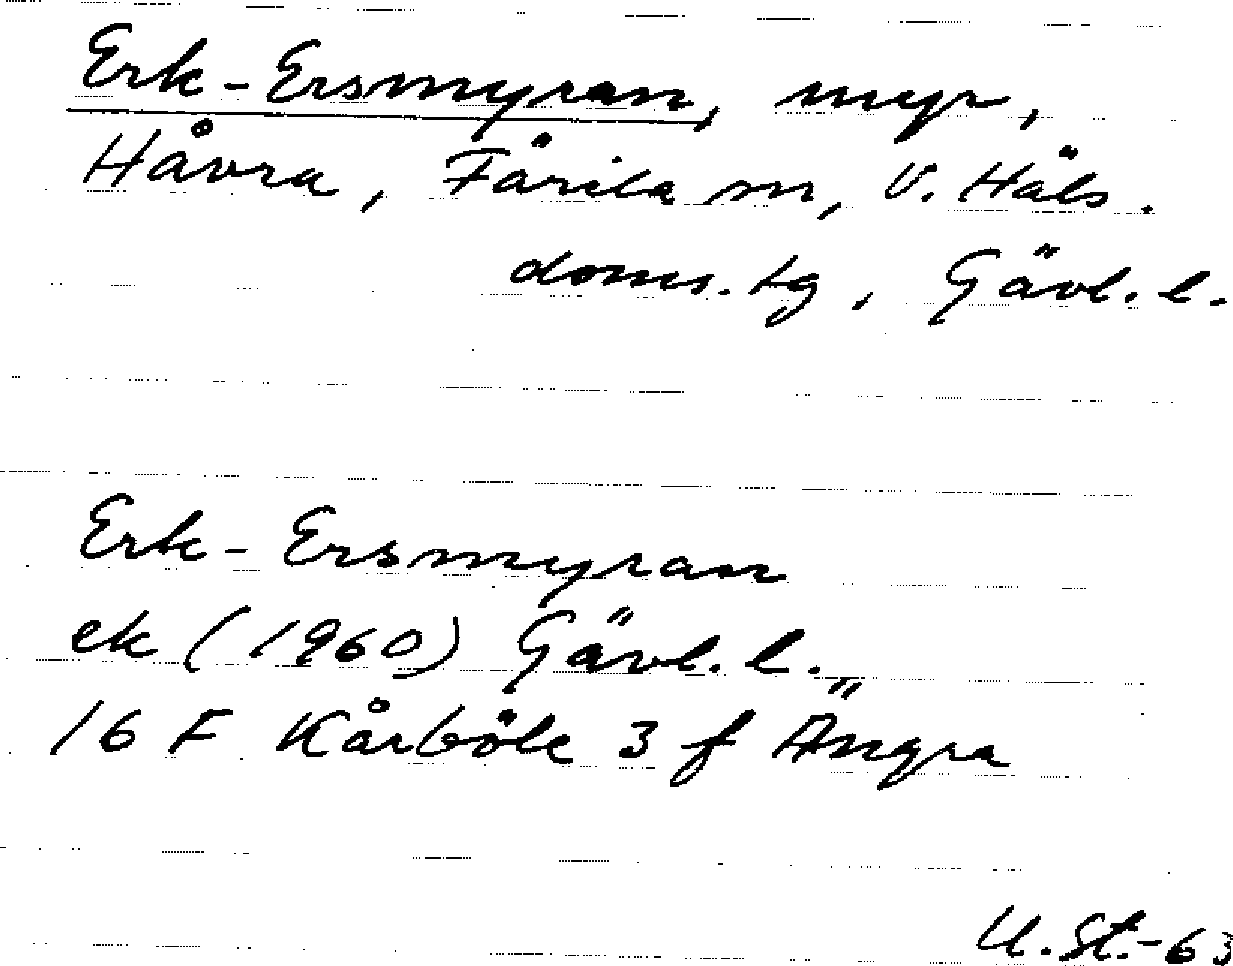 Erk-Ersmyran, myr,
Håvra, Färila sn, V. Häls.
doms. tg, Gävl. l.
Erk-Ersmyran
ek (1960) Gävl. l.
16 F Kårböle 3 f Ängra
U. St.-63